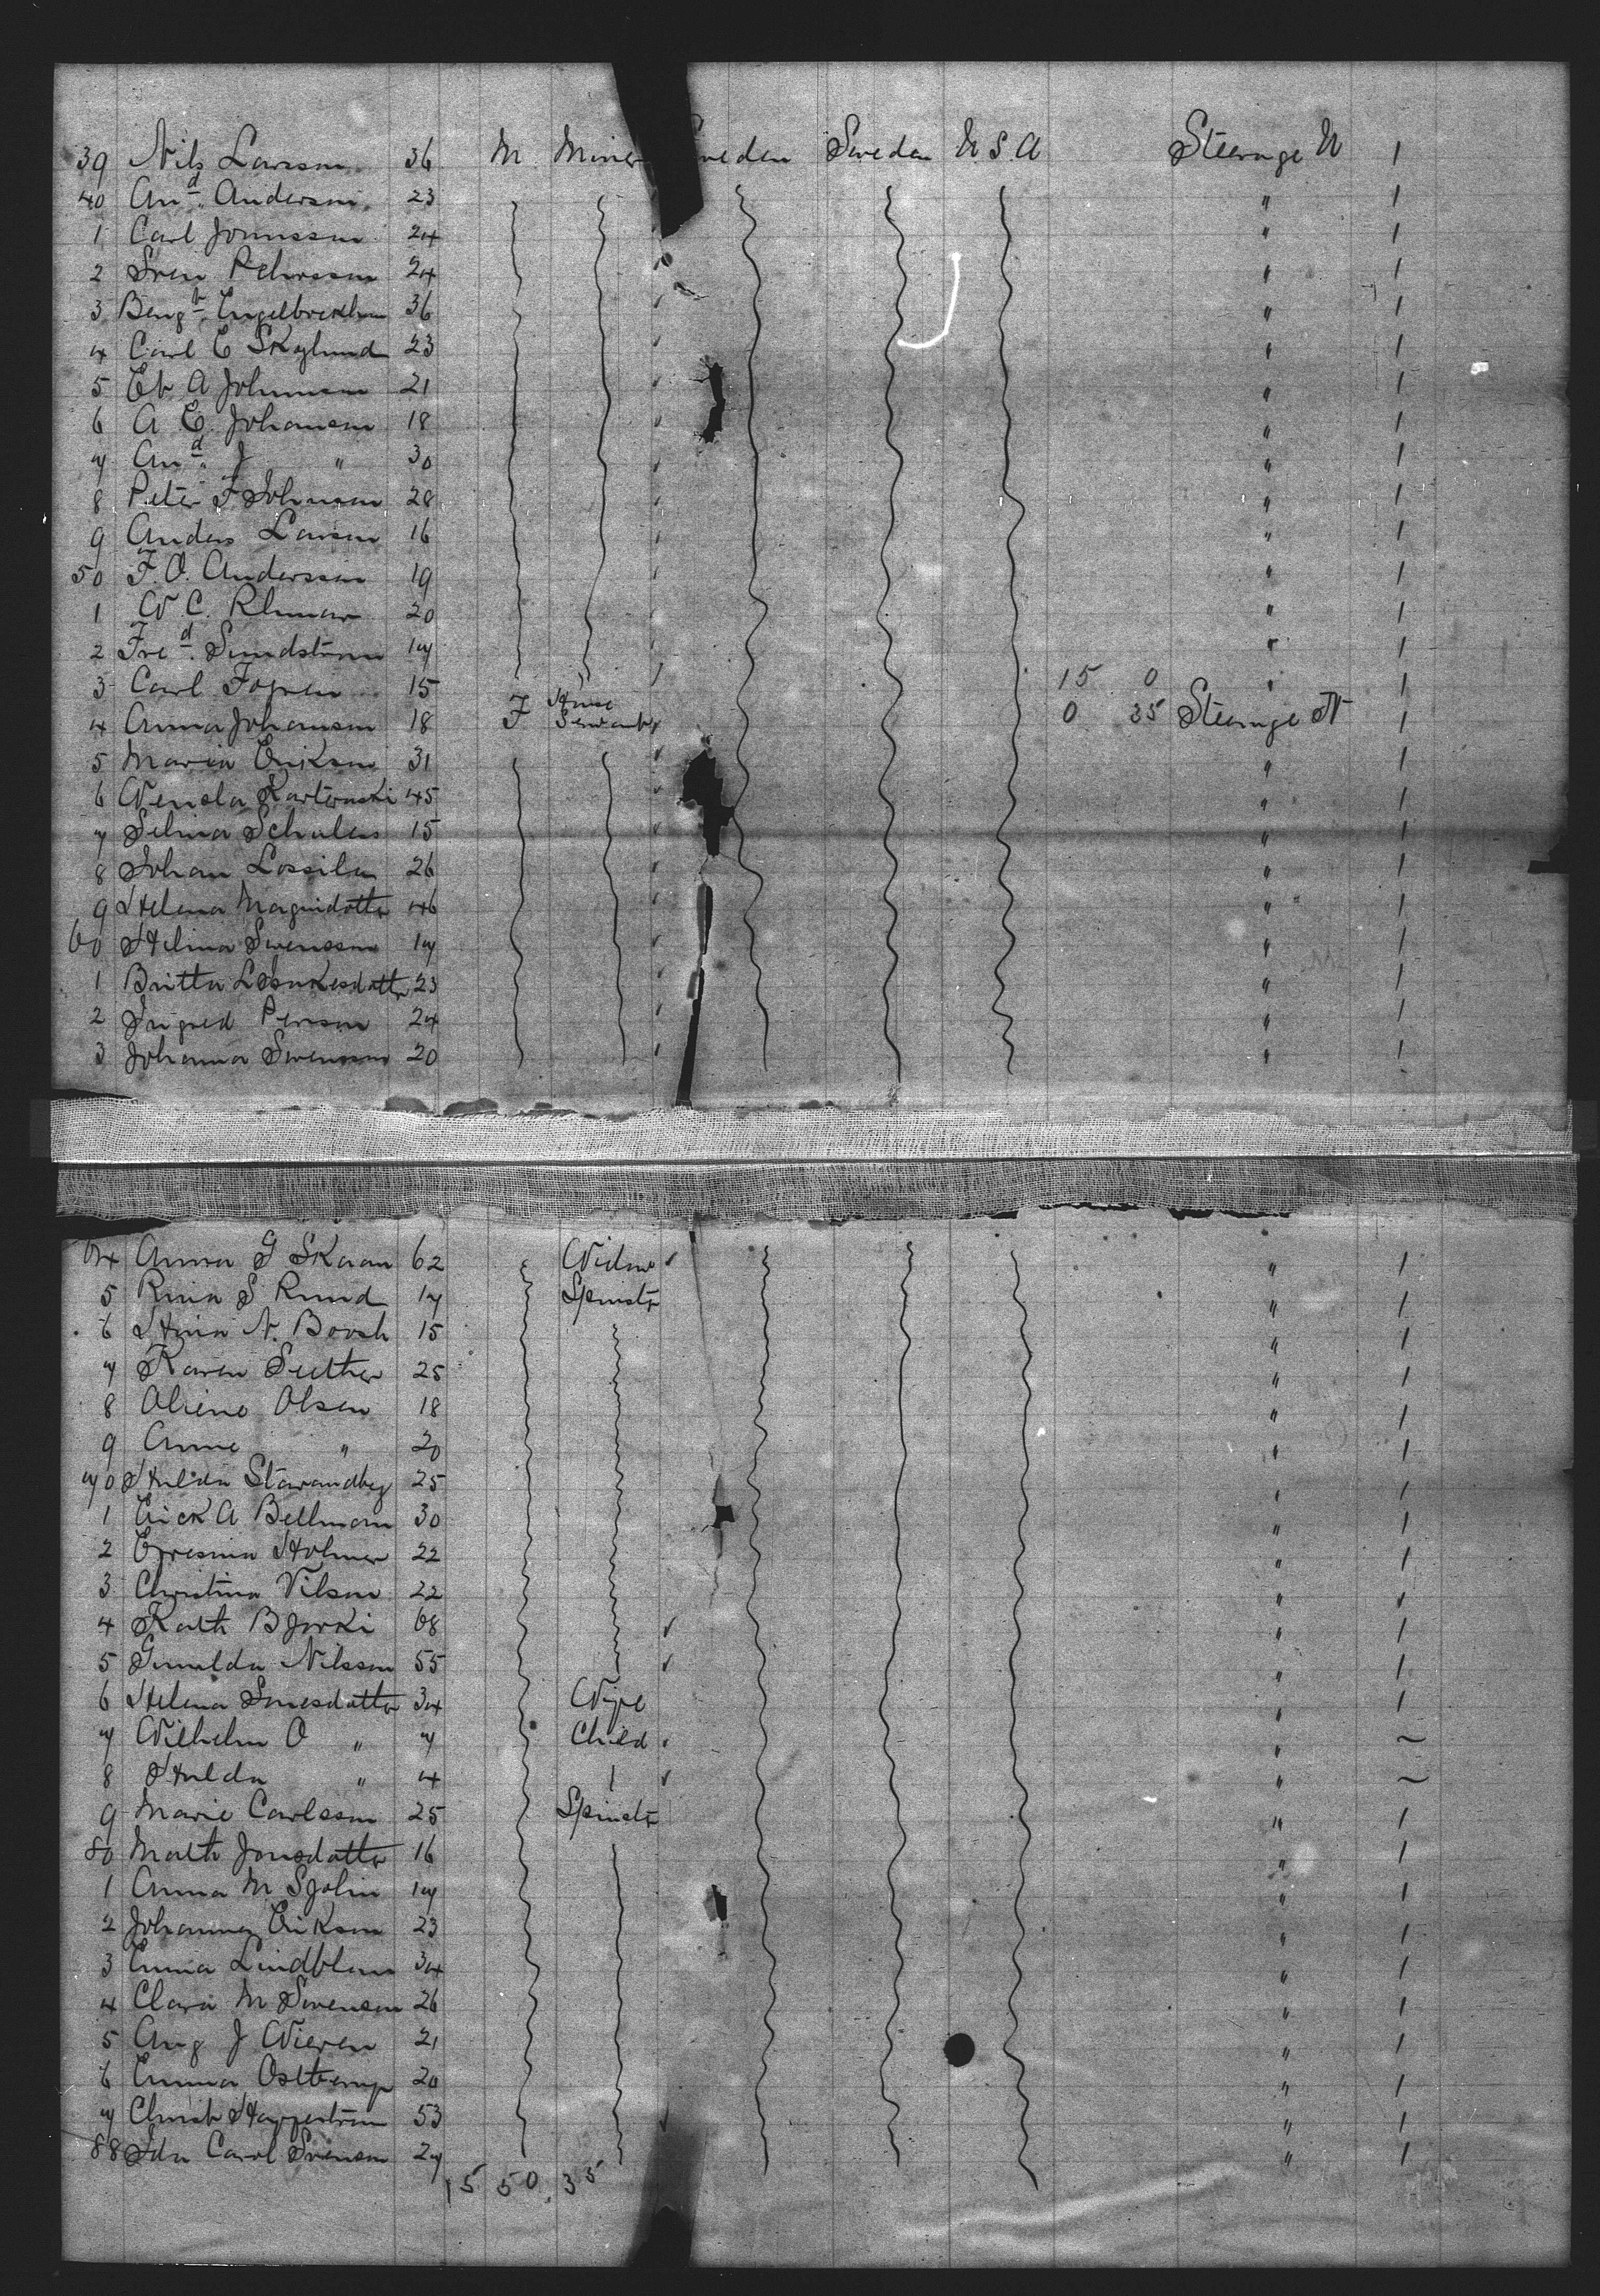 39 Nils Larsson 36 M Miner Sweden Sweden U S A Steerage N 1
40 An^d. Anderson 23 " 1
1 Carl Jonnsson 24 " 1
2 Sven Pehrsson 24 " 1
3 Beng^t. Engelbrektson 36 " 1
4 Carl E Skoglund 23 " 1
5 Et A Johnnson 21 " 1
6 A E. Johanson 18 " 1
7 An^d. J " 30 " 1
8 Peter F Johnson 28 " 1
9 Anders Larson 16 " 1
50 F. O. Andersson 19 " 1
1 W C. 20 " 1
2 Fre^d. Sundstrom 17 " 1
3 Carl 15 15 0 " 1
4 Anna Johanson 18 F House Servants 0 35 Steerage N 1
5 Maria Erikson 31 " 1
6 Wendla 45 " 1
7 Selma 15 " 1
8 Johan 26 " 1
9 Helena Magnidotter 46 " 1
60 Helina Swensson 17 " 1
1 Britta 23 " 1
2 Ingred Person 24 " 1
3 Johanna Swensson 20 " 1
64 Anna G Skaan 62 Widow " 1
5 Rina S Rund 17 Spinstr " 1
6 N. 15 " 1
7 Karen 25 " 1
8 Oliene Olsen 18 " 1
9 Anne " 20 " 1
70 Hulda 25 " 1
1 Erick A Bellman 30 " 1
2 Holmer 22 " 1
3 Christina Nilson 22 " 1
4 Kath Bjorki 68 " 1
5 Nilsson 55 " 1
6 Helena 34 Wife " 1
7 Wilhelm O " 7 Child " ~
8 Hulda " 4 " ~
9 Marie Carlsson 25 Spinstr " 1
80 Math Jonsdotter 16 " 1
1 Anna M Sjolin 17 " 1
2 Johanna Erikson 23 " 1
3 Emma Lindblom 34 " 1
4 Clara M Swenson 26 " 1
5 Aug J 21 " 1
6 Emma 20 " 1
7 53 " 1
88 Ida Carol Svenson 27 " 1
15 50.35